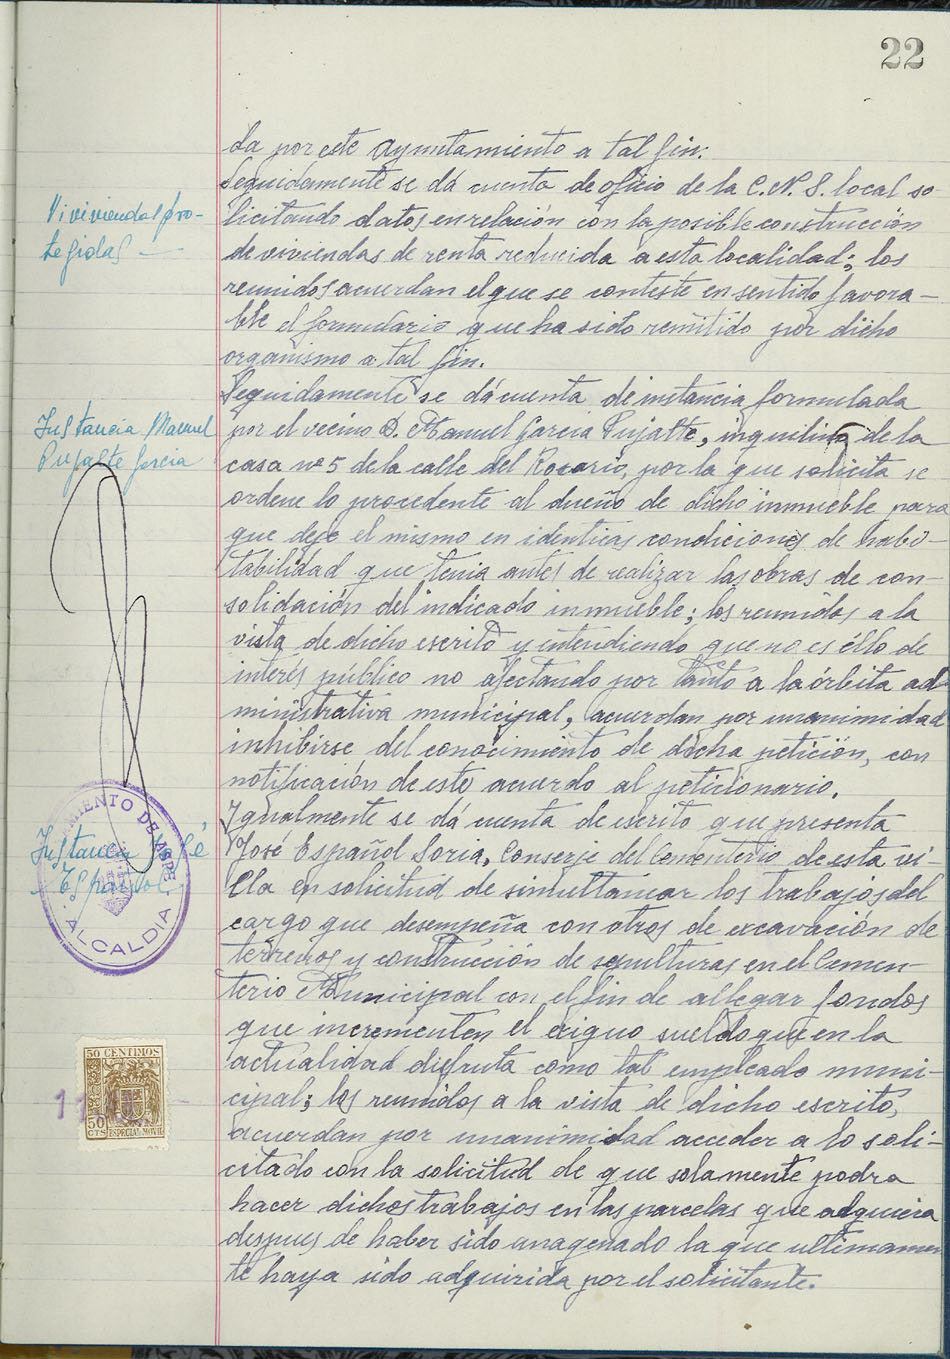 22
da por este Ayuntamiento a tal fin.
Seguidamente se dá cuenta de oficio de la C.N.S. local so-
licitando datos en relación con la posible construcción
de viviendas de renta reducida a esta localidad; los
reunidos acuerdan el que se conteste en sentido favora-
ble el formulario que ha sido remitido por dicho
organismo a tal fin.
Seguidamente se dá cuenta de instancia formulada
por el vecino D. Manuel García Pujalte, inquilino de la
casa nº 5 de la calle del Rosario, por la que solicita se
ordene lo procedente al dueño de dicho inmueble para
que deje el mismo en identicas condiciones de habi-
tabilidad que tenia antes de realizar las obras de con-
solidación del indicado inmueble; los reunidos a la
vista de dicho escrito y entendiendo que no es éllo de
interés público no afectando por tanto a la órbita ad-
ministrativa municipal, acuerdan por unanimidad
inhibirse del conocimiento de dicha petición, con
notificación de este acuerdo al peticionario.
Igualmente se dá cuenta de escrito que presenta
José Español Soria, Conserje del Cementerio de esta vi-
lla en solicitud de simultanear los trabajos del
cargo que desempeña con otros de excavación de
terrenos y construcción de sepulturas en el Cemen-
terio Municipal con el fin de allegar fondos
que incrementen el exiguo sueldo que en la
actualidad disfruta como tal empleado muni-
cipal; los reunidos a la vista de dicho escrito,
acuerdan por unanimidad acceder a lo soli-
citado con la solicitud de que solamente podra
hacer dichos trabajos en las parcelas que adquiera
despues de haber sido anagenado la que ultimamen
te haya sido adquirida por el solicitante.
Viviviendas pro-
tegidas —
Instancia Manuel
Pujalte Garcia
Instancia José
Español.
AYUNTAMIENTO DE ASPE
ALCALDIA
50 CENTIMOS
50
CTS ESPECIAL MOVIL